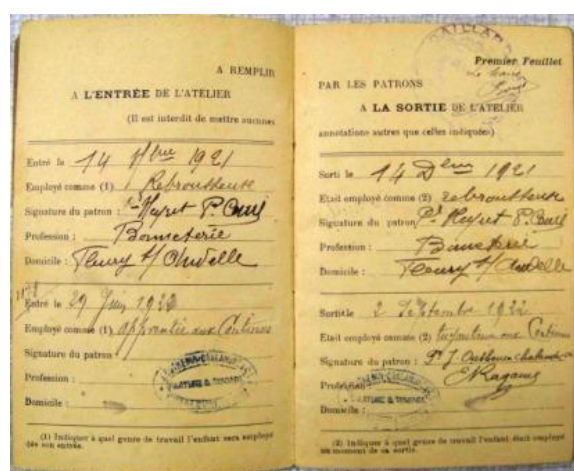 A REMPLIR
A L'ENTRÉE DE L'ATELIER
(Il est interdit de mettre aucunes
Entré le 14 9bre 1921
Employé comme (1) Rebrousseuse
Signature du patron : Heyret P.
Profession : Bonneterie
Domicile : Fleury s/ Andelle
Entré le 29 Juin 1922
Employé comme (1) apprentie aux Continus
Signature du patron :
Profession :
Domicile :
(1) Indiquer à quel genre de travail l'enfant sera employé
dès son entrée.
Premier Feuillet
PAR LES PATRONS
A LA SORTIE DE L'ATELIER
annotations autres que celles indiquées)
Sorti le 14 1921
Etait employé comme (2) rebrousseuse
Signature du patron Heyret P.
Profession : Bonneterie
Domicile : Fleury s/ Andelle
Sorti le 2 Septembre 1922
Etait employé comme (2) aux Continus
Signature du patron : J.
Profession :
Domicile :
(2) Indiquer à quel genre de travail l'enfant était employé
au moment de sa sortie.